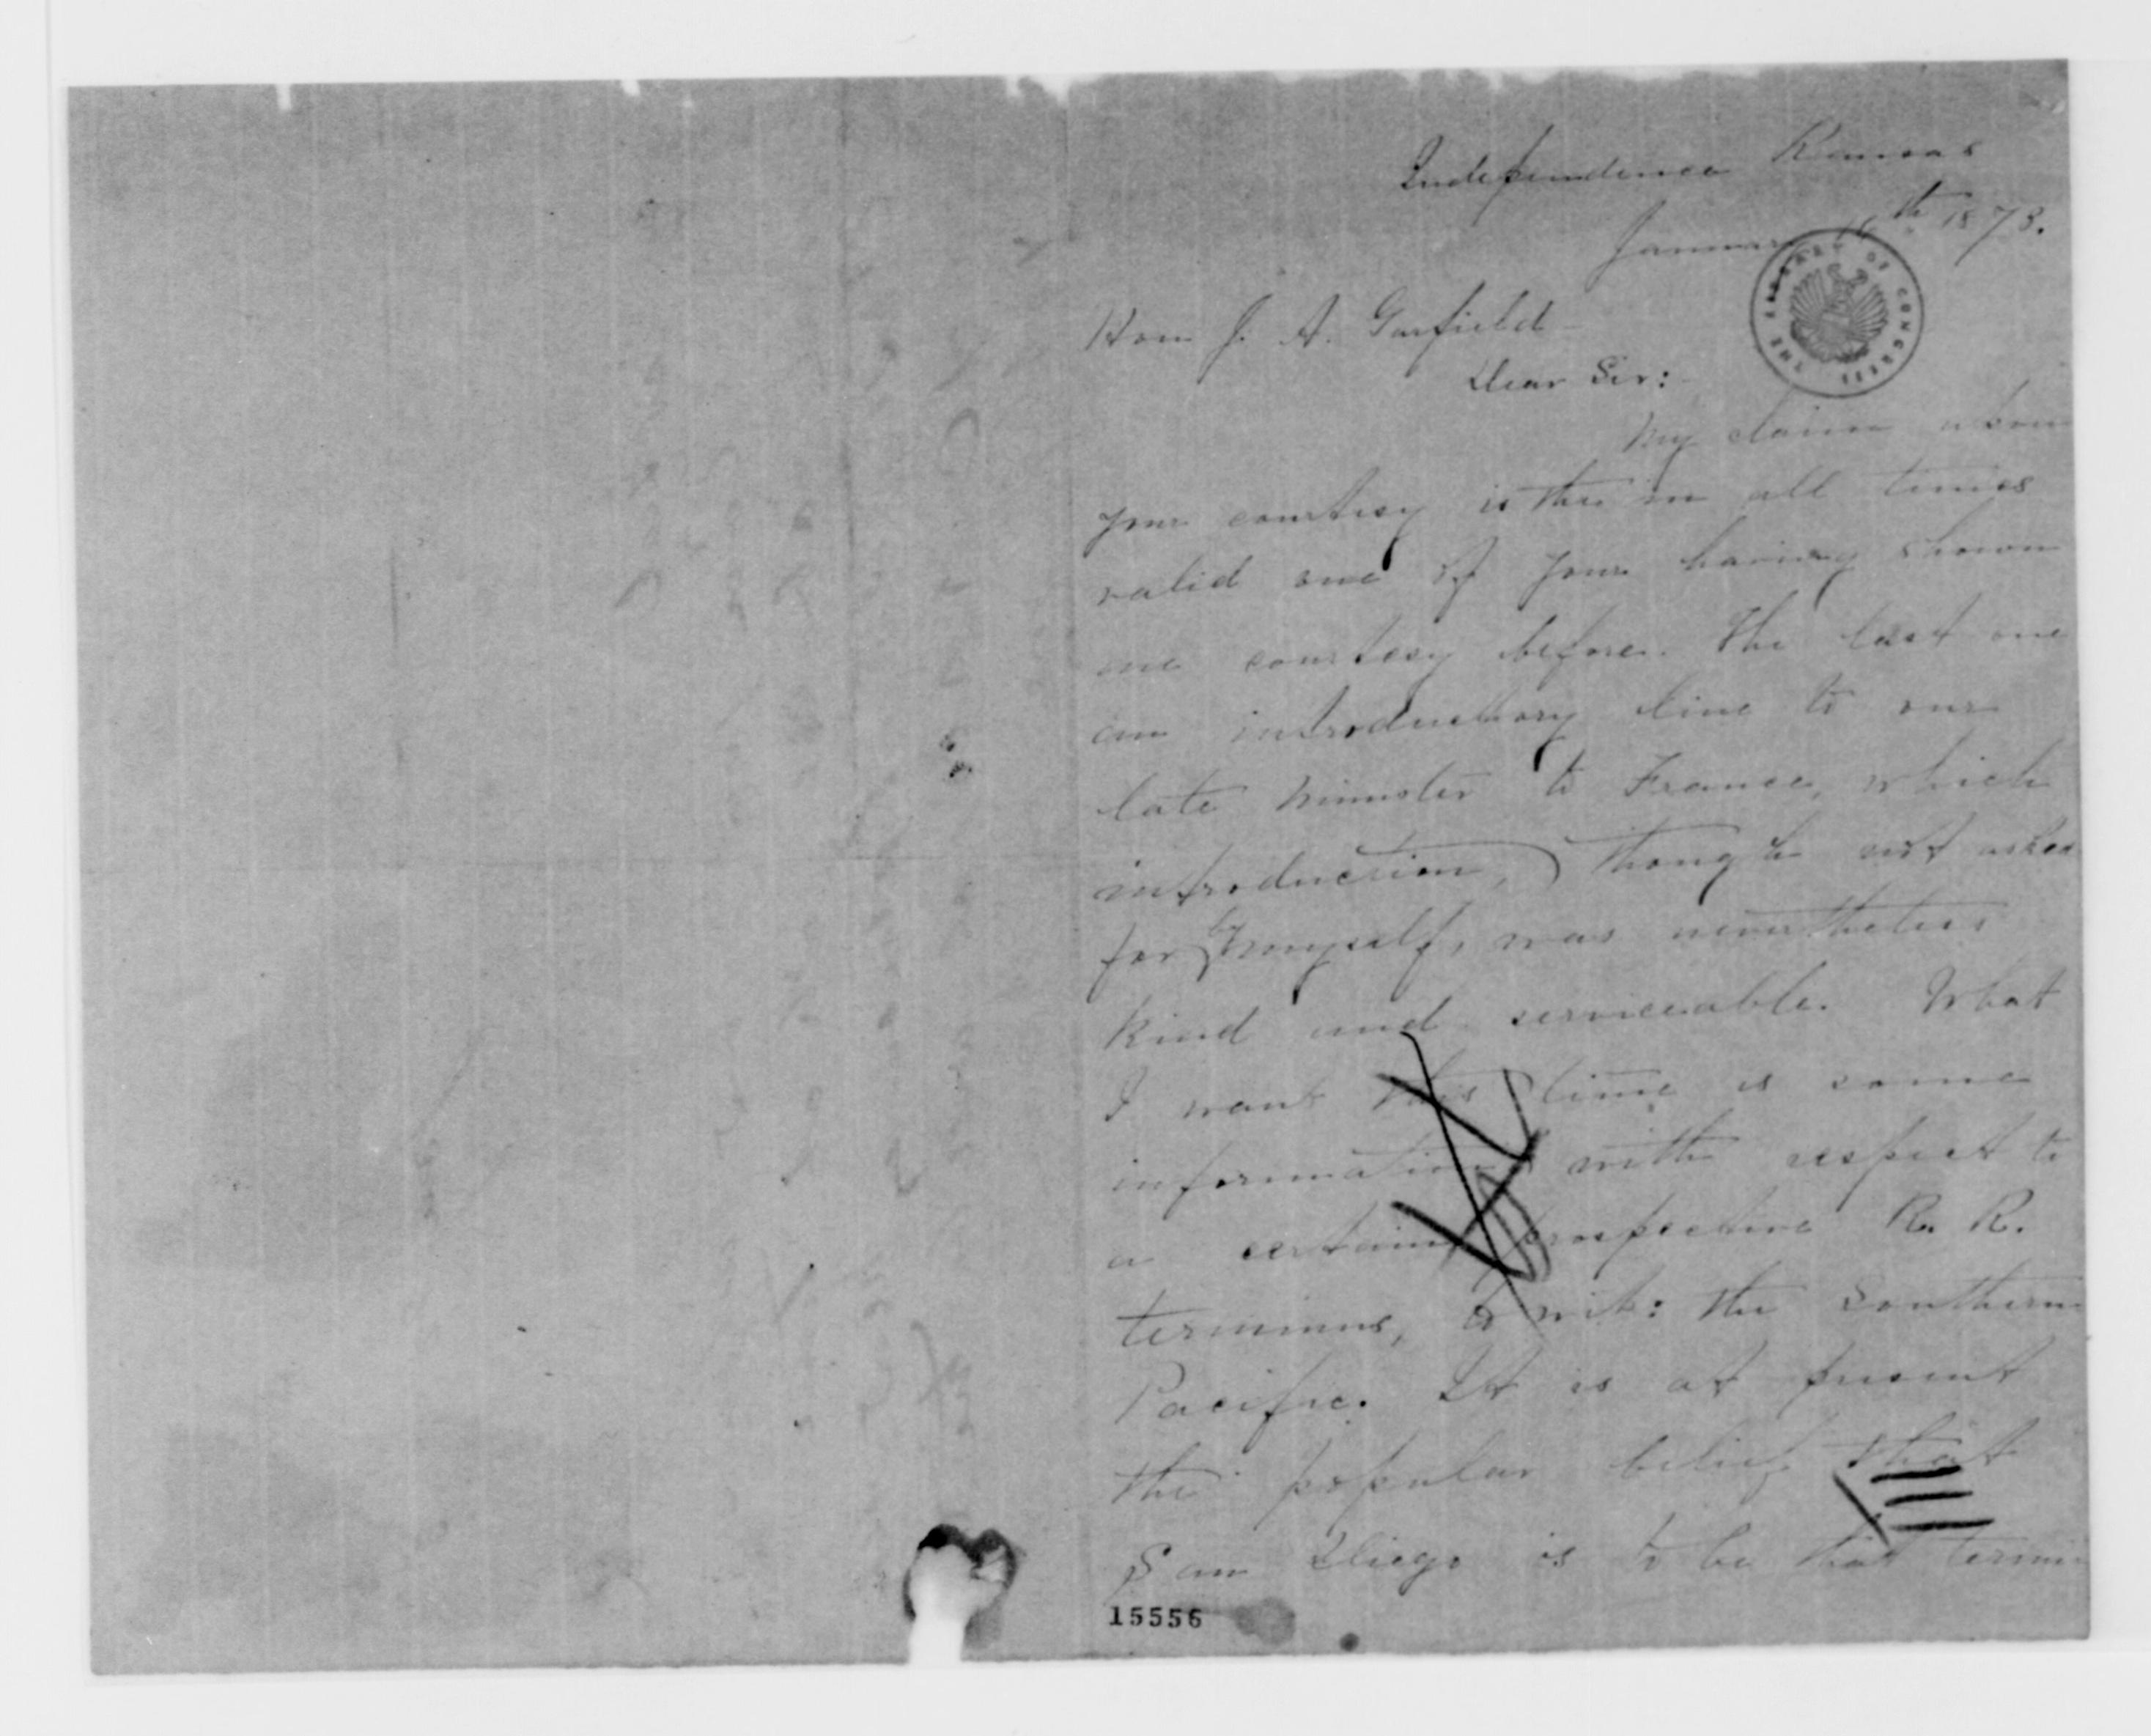 Independence Kansas
January 16th 1873.
THE LIBRARY OF CONGRESS
Hon J. A. Garfield
Dear Sir:
My claim upon
your courtesy is the in all times
valid one of your having shown
me courtesy before. The last one
an introductory line to our
late minister to France, which
introduction, though not asked
for by myself, was nevertheless
kind and serviceable. What
I want this time is some
information with respect to
a certain prospective R. R.
terminus, to wit: the Southern
Pacific. It is at present
the popular belief that
San Diego is to be that termin
15556